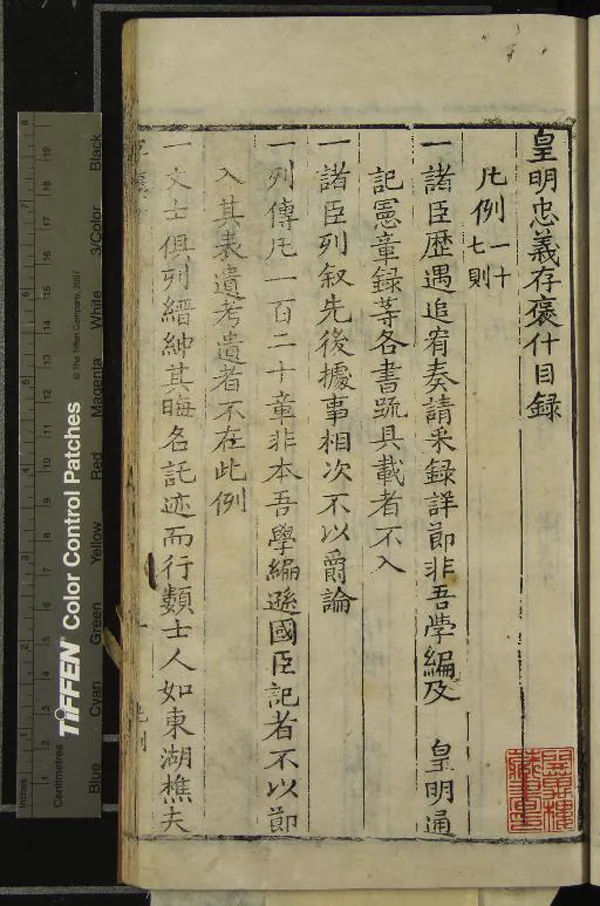 皇明忠義存襃什目録
凡例一十七則
一諸臣歴遇追宥奏請采録詳節非吾學編及 皇明通
記憲章録䓁各書䟽具載者不入
一諸臣列叙先後據事相次不以爵論
一列傳凢一百二十章非本吾學編遜國臣記者不以節
入其表遺考遺者不在此例
一文士俱列縉紳其晦名託迹而行類士人如東湖樵夫
凡例
Inches
Centimetres
TIFFEN Color Control Patches
© The Tiffen Company, 2007
Blue
Cyan
Green
Yellow
Red
Magenta
White
3/Color
Black